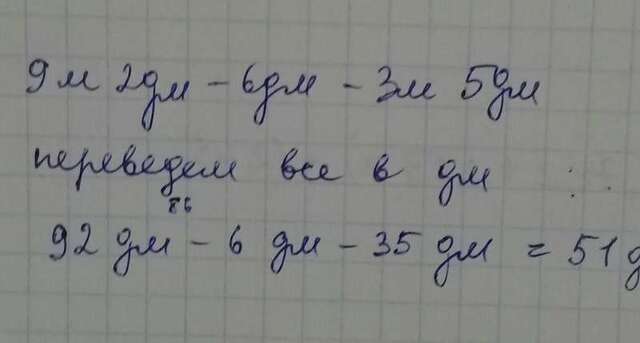 9 м 2 дм – 6 дм – 3 м 5 дм
переведем все в дм
86
92 дм – 6 дм – 35 дм = 51 д